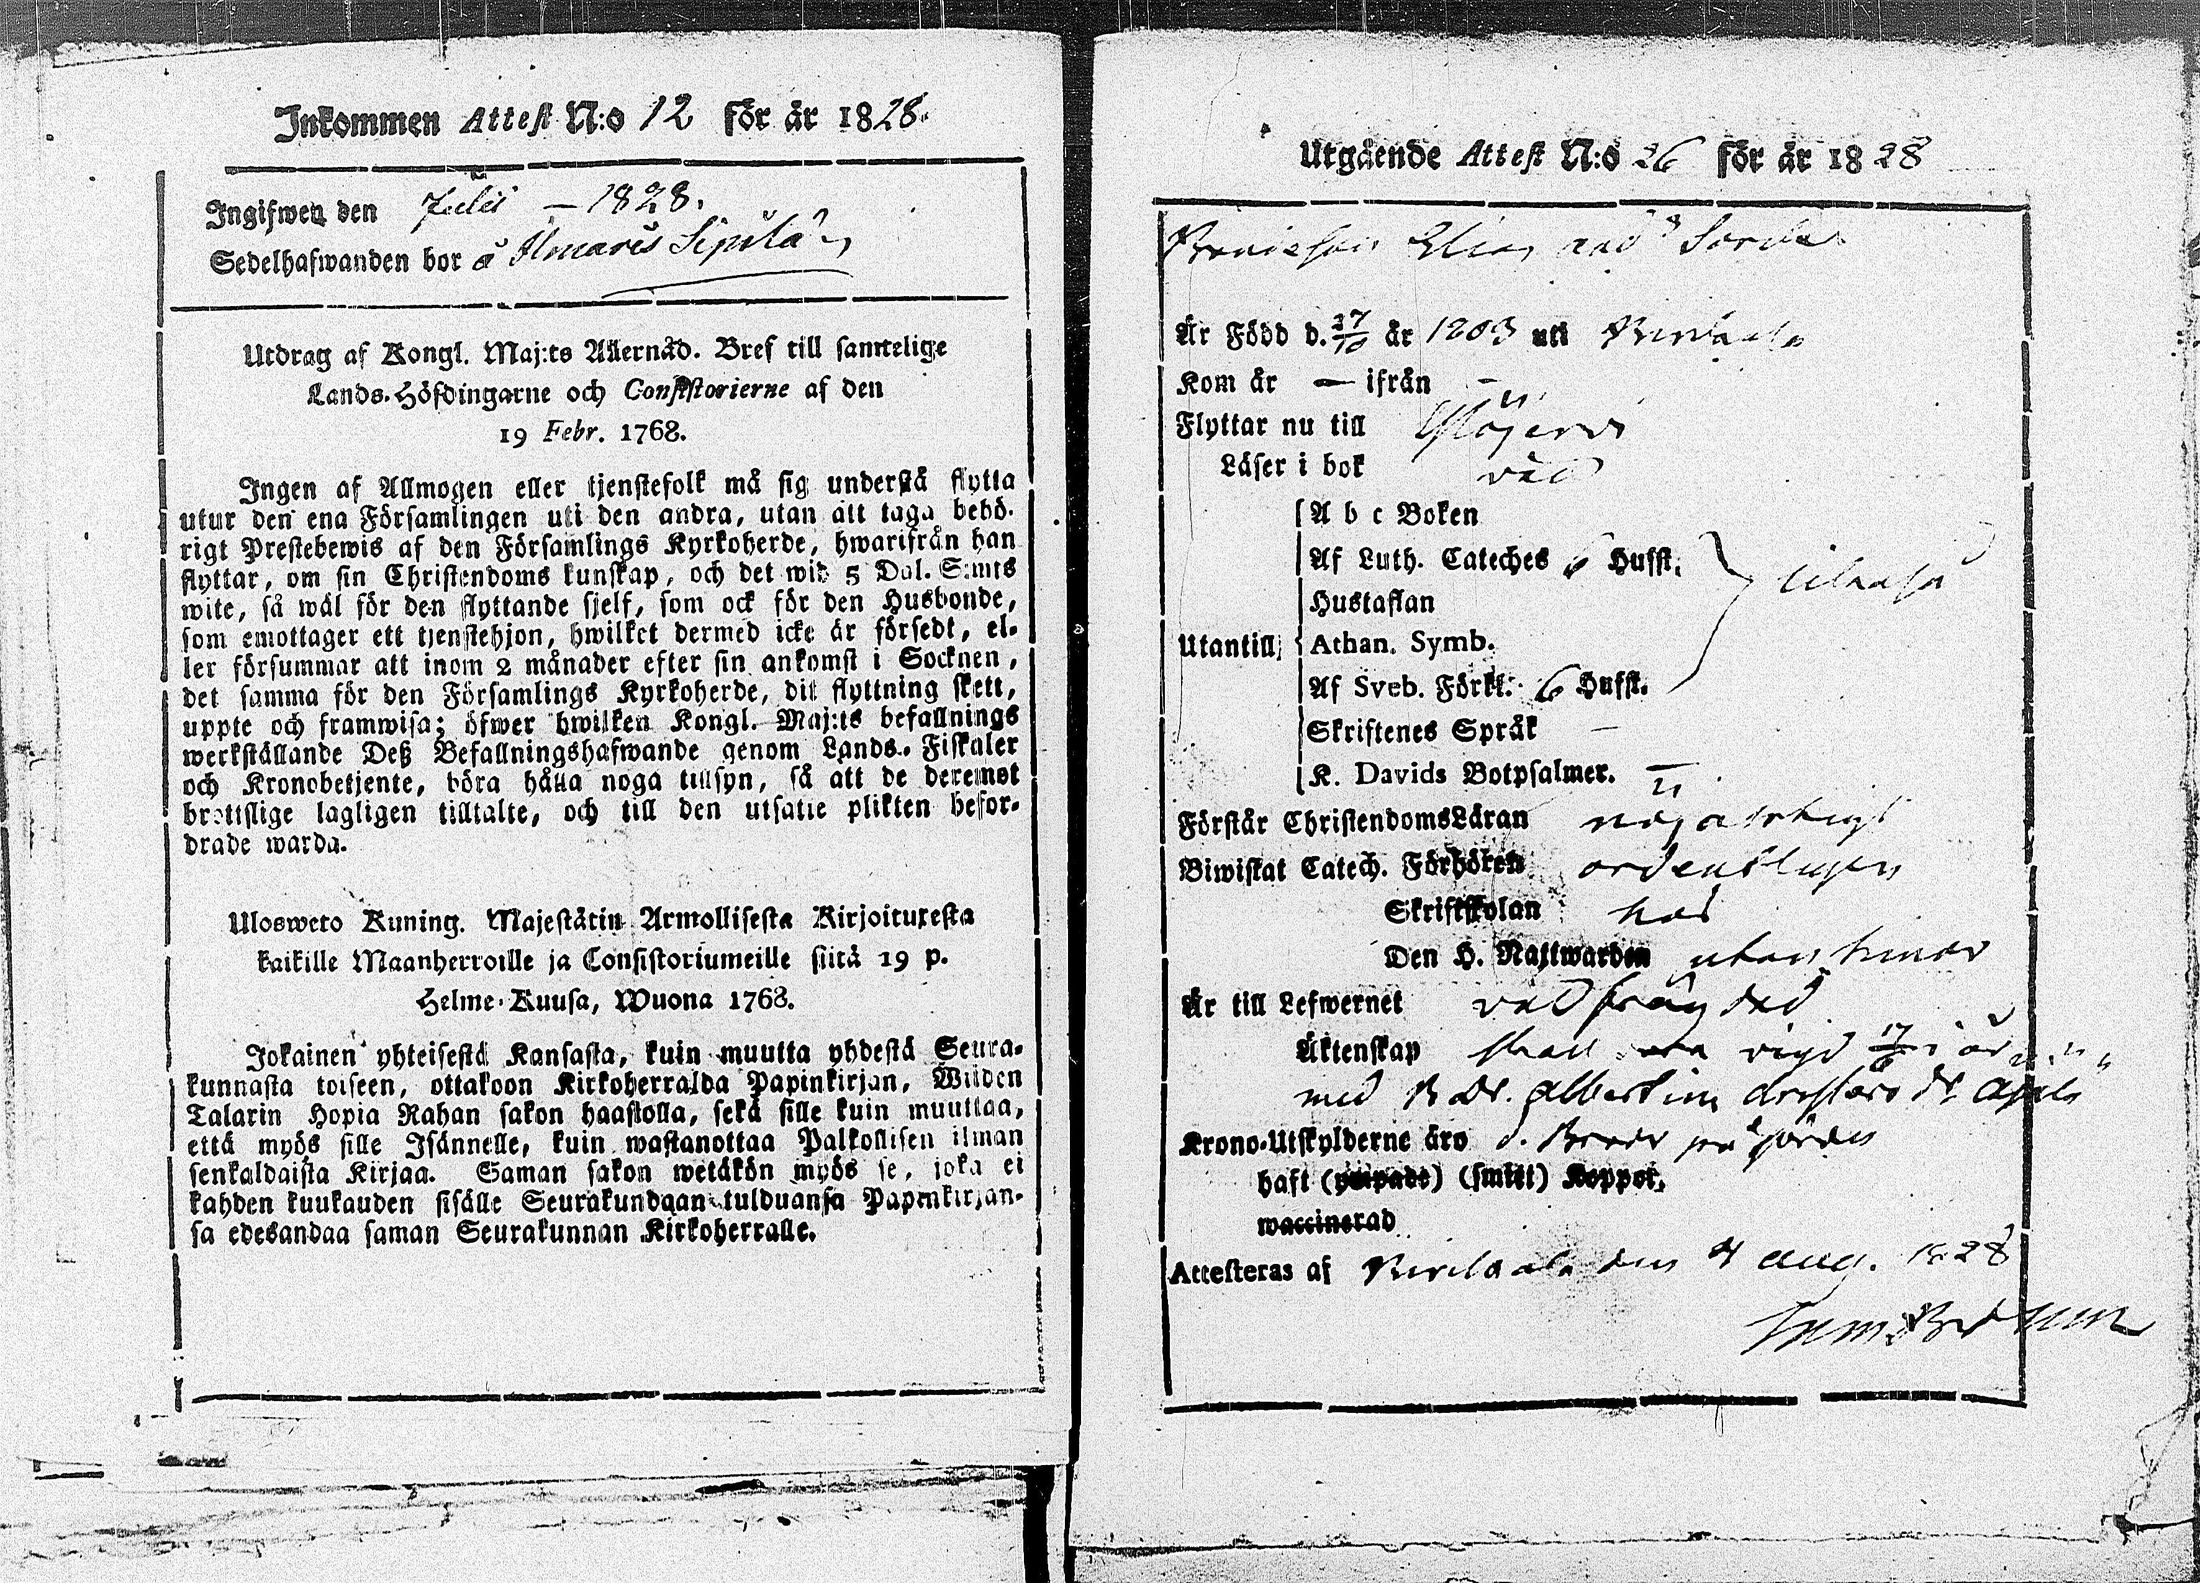 Inkommen Attest N:o 12 för år 1828.
Ingifwen den Julii — 1828.
Sedelhafwanden bor å Ilmaris Sipilä
Utdrag af Kongl. Maj:ts Allernåd. Bref till samtelige
Lands-Höfdingarne och Consistorierne af den
19 Febr. 1768.
Ingen af Allmogen eller tjenstefolk må sig understå flytta
utur den ena Församlingen uti den andra, utan att taga behö-
rigt Prestebewis af den Församlings Kyrkoherde, hwarifrån han
flyttar, om sin Christendoms kunskap, och det wid 5 Dal. S:mts
wite, så wäl för den flyttande sjelf, som ock för den Husbonde,
som emottager ett tjenstehjon, hwilket dermed icke är försedt, el-
ler försummar att inom 2 månader efter sin ankomst i Socknen,
det samma för den Församlings Kyrkoherde, dit flyttning skett,
uppte och framwisa; öfwer hwilken Kongl. Maj:ts befallnings
werkställande Deß Befallningshafwande genom Lands-Fiskaler
och Kronobetjente, böra hålla noga tillsyn, så att de deremot
brottslige lagligen tilltalte, och till den utsatte plikten befor-
drade warda.
Ulosweto Kuning. Majestätin Armollisesta Kirjoituxesta
kaikille Maanherroille ja Consistoriumeille siitä 19 p.
Helme-Kuusa, Wuona 1768.
Jokainen yhteisestä Kansasta, kuin muutta yhdestä Seura-
kunnasta toiseen, ottakoon Kirkoherralda Papinkirjan, Wiiden
Talarin Hopia Rahan sakon haastolla, sekä sille kuin muuttaa,
että myös sille Isännelle, kuin wastanottaa Palkollisen ilman
senkaldaista Kirjaa. Saman sakon wetäkön myös se, joka ei
kahden kuukauden sisälle Seurakundaan tulduansa Papinkirjan-
sa edesandaa saman Seurakunnan Kirkoherralle.
Utgående Attest N:o 26 för år 1828
Elias
Är Född d. 27/10 år 1803 uti Birkala
Kom år — ifrån —
Flyttar nu till Ylöjervi
Läser i bok väl
A b c Boken
Af Luth. Cateches 6 Hufst.
Hustaflan
Utantill Athan. Symb.
Af Sveb. Förkl. 6 Hufst.
Skriftenes Språk —
K. Davids Botpsalmer. —
Förstår ChristendomsLäran nöjaktigt
Biwistat Catech. Förhören ordentligen
Skriftskolan
Den H. Nattwarden utan hinder
Är till Lefwernet välfrägdad
Äktenskap vigd i år
med Albertina
Krono-Utskylderne äro
haft (ympade) (smitt) Koppor,
waccinerad
Attesteras af Birkala den 4 Aug. 1828